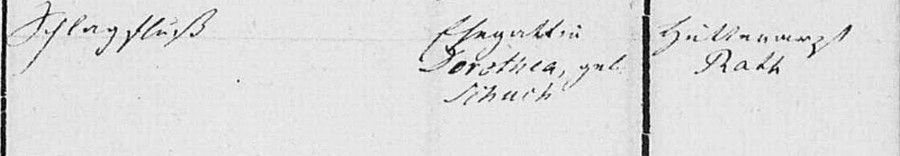 Schlagfluß
Ehegattin
Dorothea, geb.
Schuch
Hüttenarzt
Rath